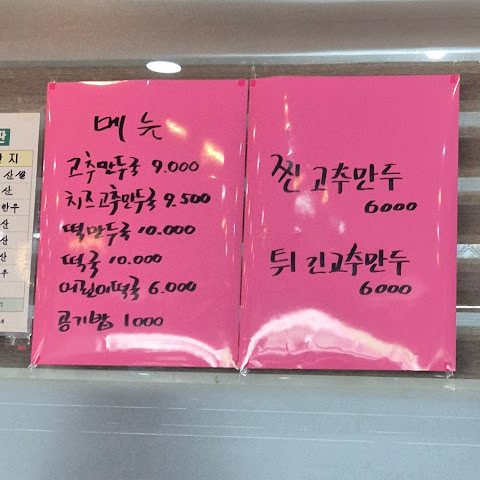 판
산
산
산
산
메뉴
고추만두국 9.000
치즈고추만두국 9.500
떡만두국 10.000
떡국 10.000
어린이떡국 6.000
공기밥 1000
찐고추만두
6000
튀긴고추만두
6000